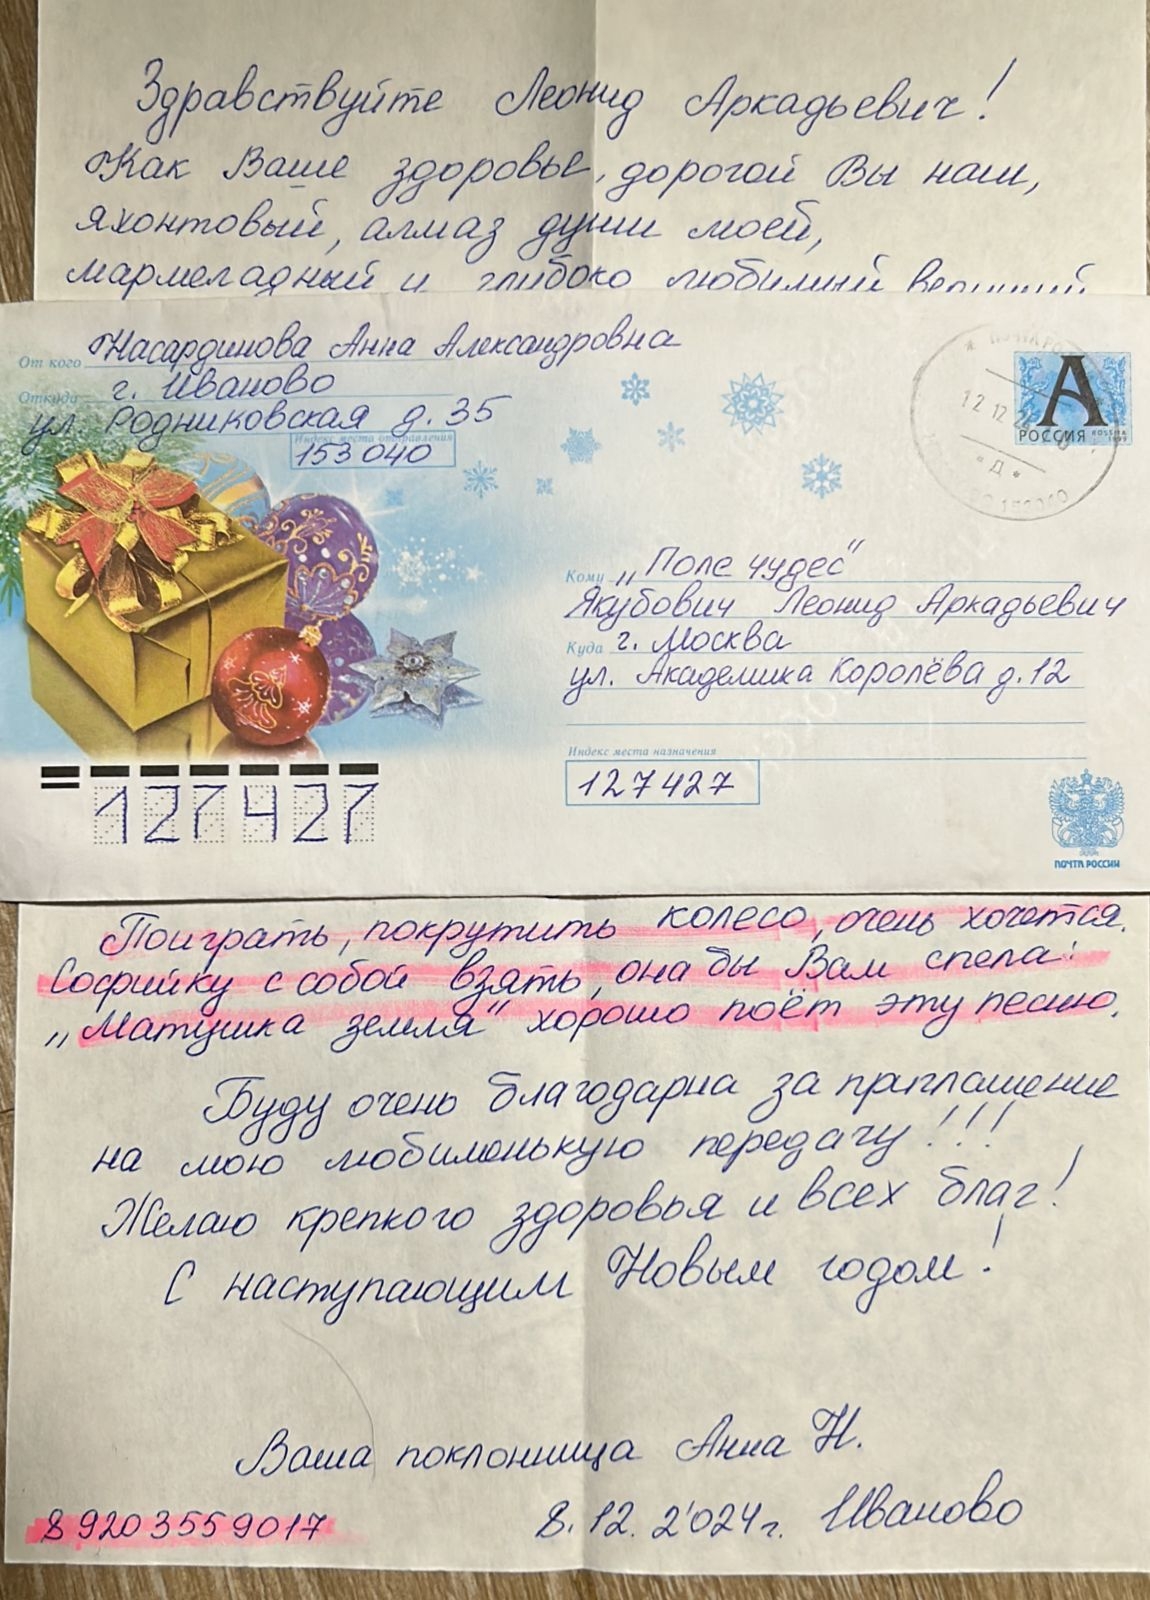 Здравствуйте Леонид Аркадьевич!
Как Ваше здоровье, дорогой Вы наш,
яхонтовый, алмаз души моей,
мармеладный и глубоко любимый
От кого Насардинова Анна Александровна
Откуда г. Иваново
ул Родниковская д. 35
Индекс места отправления
153040
ПОЧТА РОС
12 12 24
"Д"
153040
А
РОССИЯ ROSSIJA
1999
Кому „Поле чудес"
Якубович Леонид Аркадьевич
Куда г. Москва
ул. Академика Королёва д. 12
Индекс места назначения
127427
127427
ПОЧТА РОССИИ
Поиграть, покрутить колесо, очень хочется.
Софийку с собой взять, она бы Вам спела:
„Матушка земля" хорошо поёт эту песню.
Буду очень благодарна за приглашение
на мою любименькую передачу!!!
Желаю крепкого здоровья и всех благ!
С наступающим Новым годом!
Ваша поклонница Анна Н.
8 920 355 90 17
8. 12. 2024 г. Иваново